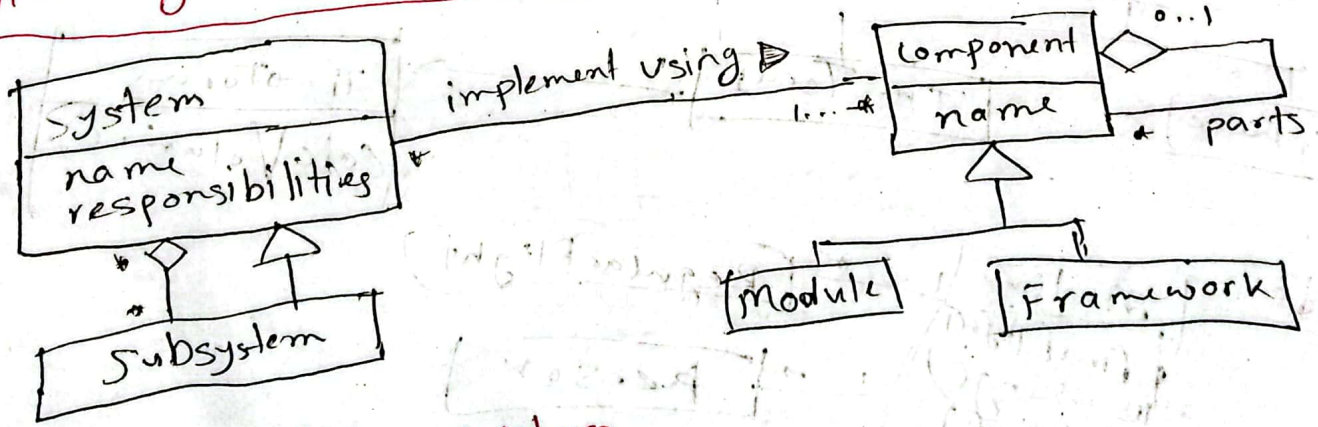 system
name
responsibilities
*
*
subsystem
implement using
*
1...*
component
name
0..1
*
parts
Module
Framework